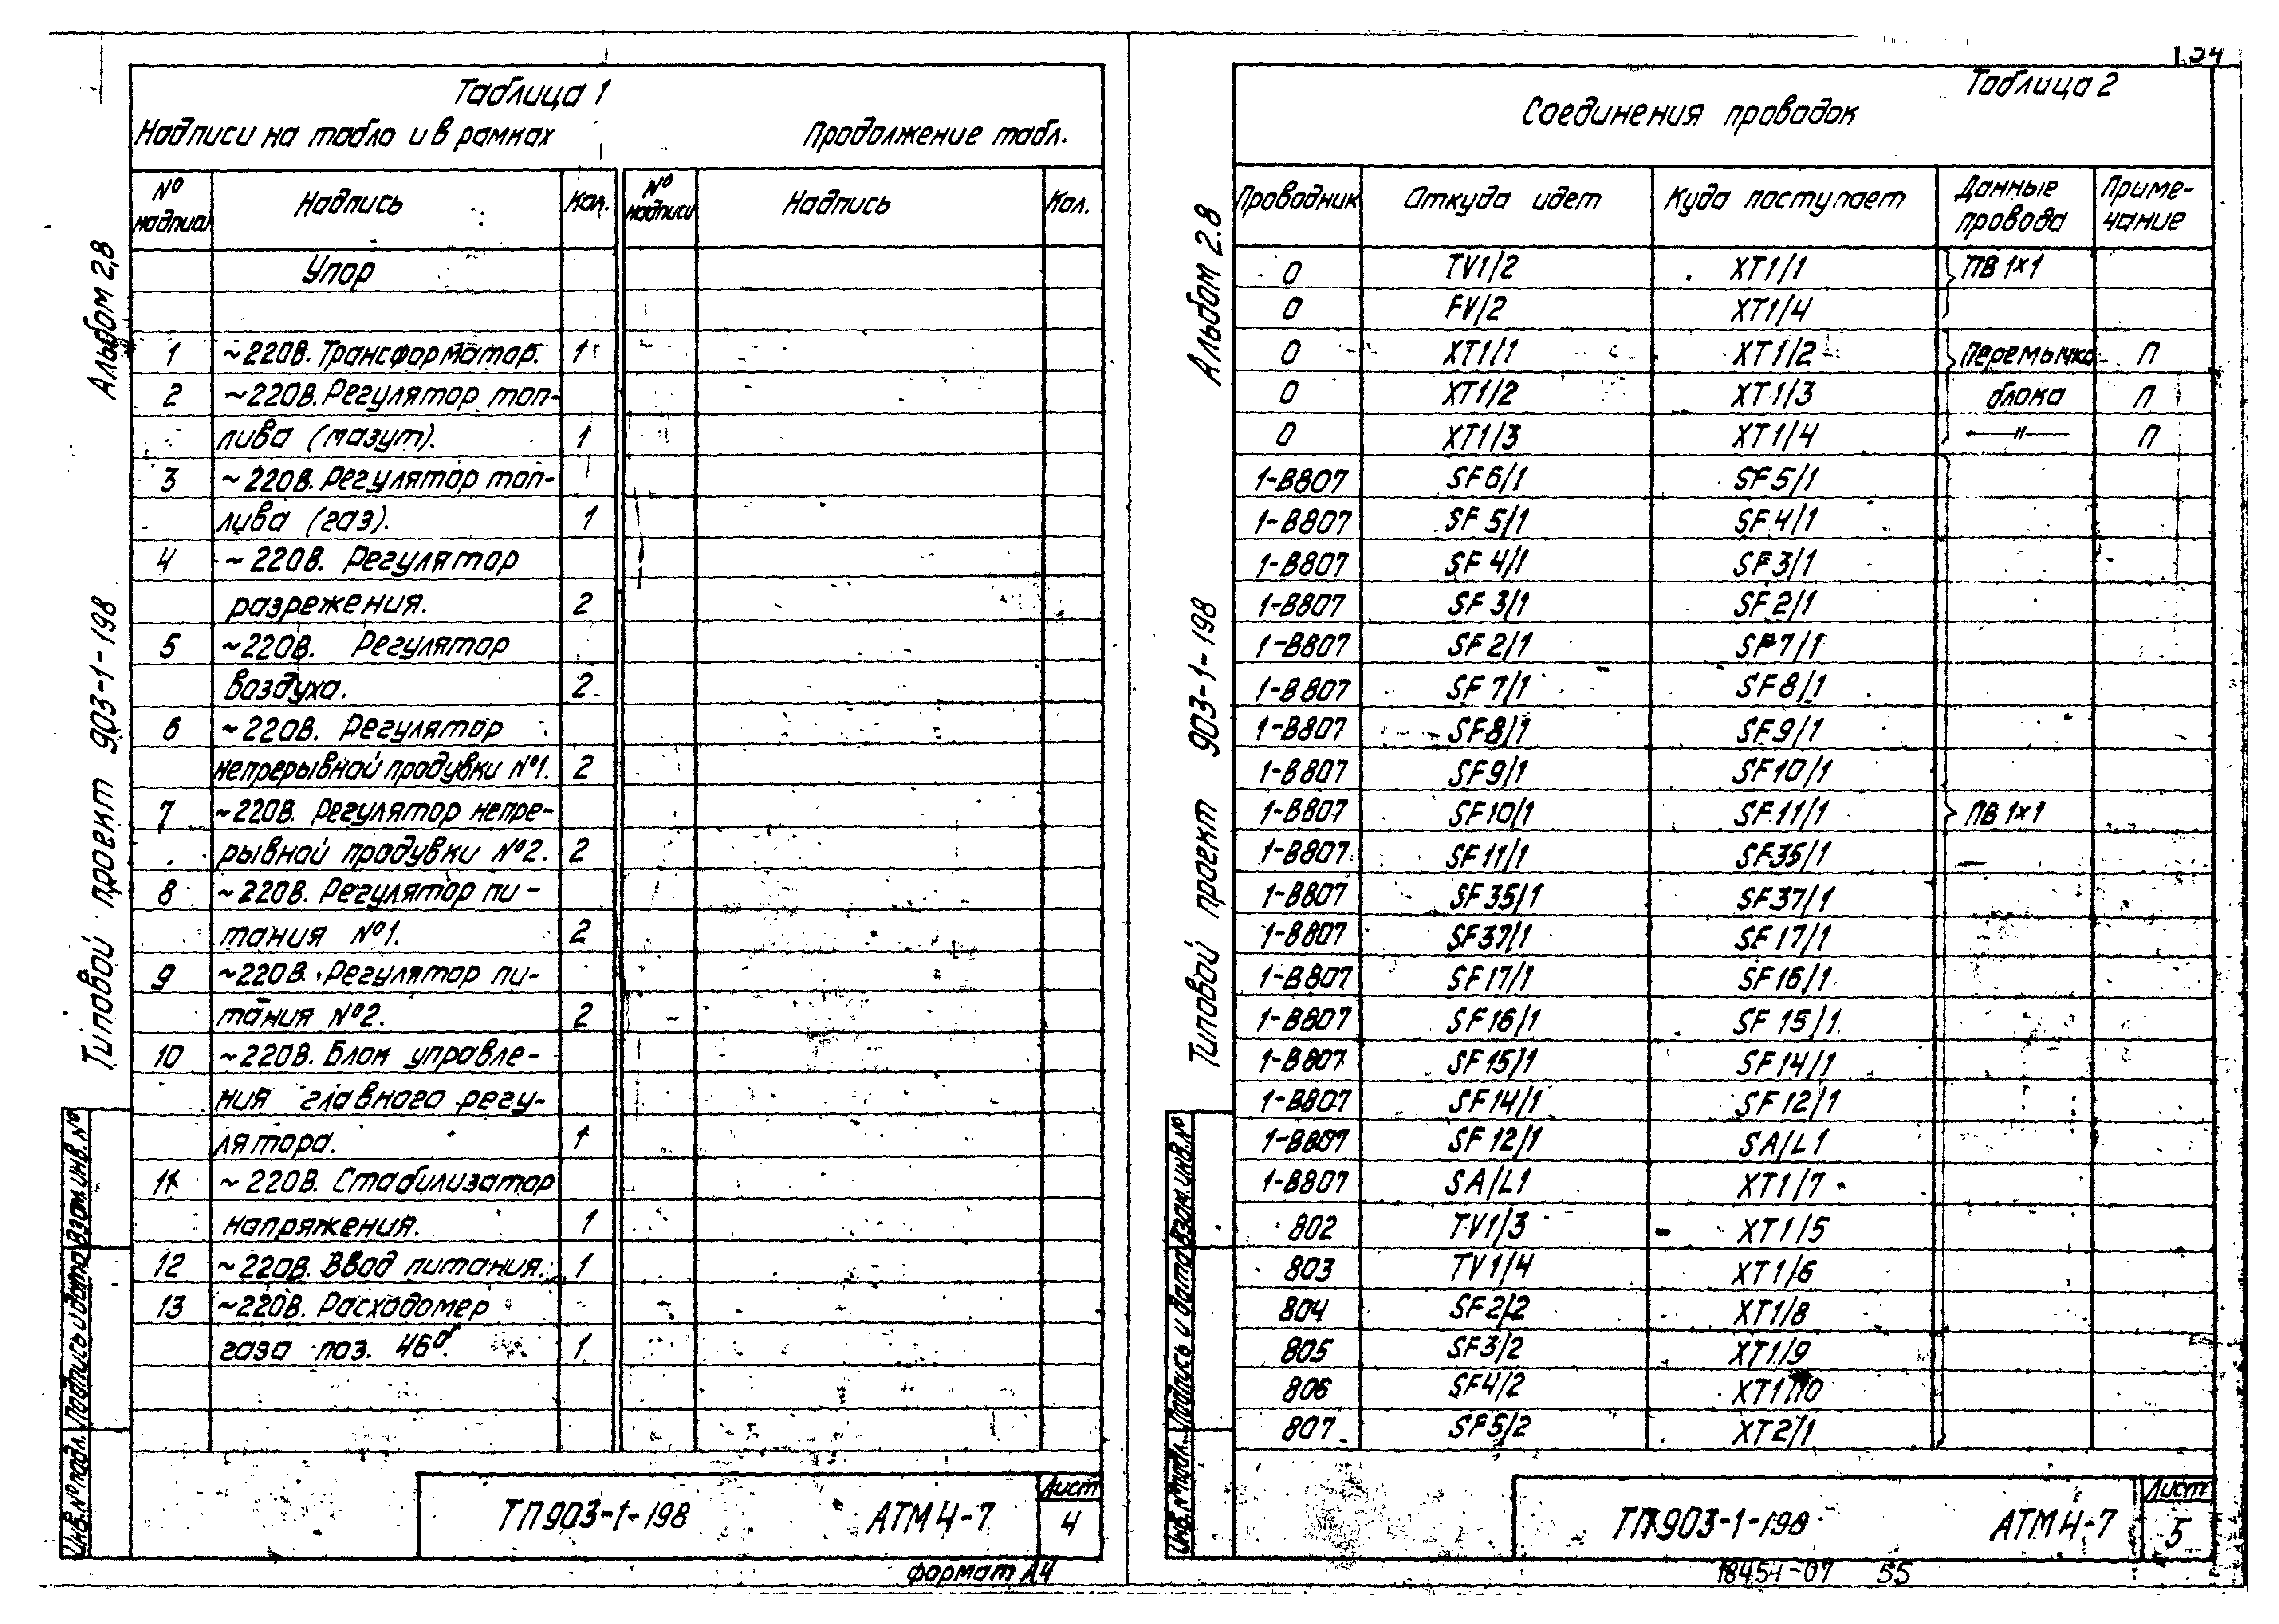 Таблица 1
Надписи на табло и в рамках Продолжение табл.
№ надписи Надпись Кол. № надписи Надпись Кол.
Упор
1 ~220В. Трансформатор. 1
2 ~220В. Регулятор топ-
лива (мазут). 1
3 ~220В. Регулятор топ-
лива (газ). 1
4 ~220В. Регулятор
разрежения. 2
5 ~220В. Регулятор
воздуха. 2
6 ~220В. Регулятор
непрерывной продувки №1. 2
7 ~220В. Регулятор непре-
рывной продувки №2. 2
8 ~220В. Регулятор пи-
тания №1. 2
9 ~220В. Регулятор пи-
тания №2. 2
10 ~220В. Блок управле-
ния главного регу-
лятора. 1
11 ~220В. Стабилизатор
напряжения. 1
12 ~220В. Ввод питания. 1
13 ~220В. Расходомер
газа поз. 46б. 1
Альбом 2,8
Типовой проект 903-1-198
Взам. инв. №
Подпись и дата
Инв. № подл.
ТП903-1-198 АТМ4-7
Лист
4
формат А4
Таблица 2
Соединения проводок
Проводник Откуда идет Куда поступает Данные провода Примечание
0 TV1/2 XT1/1 ПВ 1×1
0 FV/2 XT1/4
0 XT1/1 XT1/2 Перемычка П
0 XT1/2 XT1/3 блока П
0 XT1/3 XT1/4 —"— П
1-В807 SF6/1 SF5/1
1-В807 SF5/1 SF4/1
1-В807 SF4/1 SF3/1
1-В807 SF3/1 SF2/1
1-В807 SF2/1 SF7/1
1-В807 SF7/1 SF8/1
1-В807 SF8/1 SF9/1
1-В807 SF9/1 SF10/1
1-В807 SF10/1 SF11/1 ПВ 1×1
1-В807 SF11/1 SF35/1
1-В807 SF35/1 SF37/1
1-В807 SF37/1 SF17/1
1-В807 SF17/1 SF16/1
1-В807 SF16/1 SF15/1
1-В807 SF15/1 SF14/1
1-В807 SF14/1 SF12/1
1-В807 SF12/1 SA/L1
1-В807 SA/L1 XT1/7
802 TV1/3 XT1/5
803 TV1/4 XT1/6
804 SF2/2 XT1/8
805 SF3/2 XT1/9
806 SF4/2 XT1/10
807 SF5/2 XT2/1
Альбом 2.8
Типовой проект 903-1-198
Взам. инв. №
Подпись и дата
Инв. № подл.
ТП903-1-198 АТМ4-7
Лист
5
18454-07 55